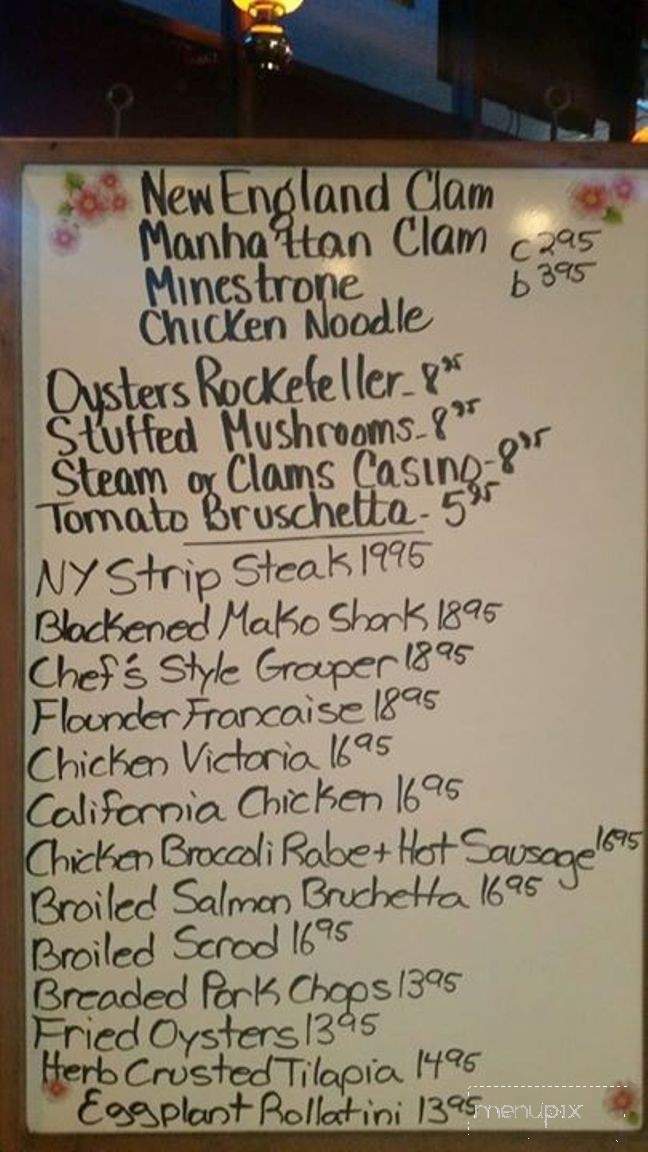 New England Clam
Manhattan Clam c 295
Minestrone b 395
Chicken Noodle
Oysters Rockefeller - 8 95
Stuffed Mushrooms - 8 95
Steam or Clams Casino - 8 95
Tomato Bruschetta - 5 95
NY Strip Steak 1995
Blackened Mako Shark 1895
Chef's Style Grouper 1895
Flounder Francaise 1895
Chicken Victoria 1695
California Chicken 1695
Chicken Broccoli Rabe + Hot Sausage 1695
Broiled Salmon Bruchetta 1695
Broiled Scrod 1695
Breaded Pork Chops 1395
Fried Oysters 1395
Herb Crusted Tilapia 1495
Eggplant Rollatini 1395
menupix